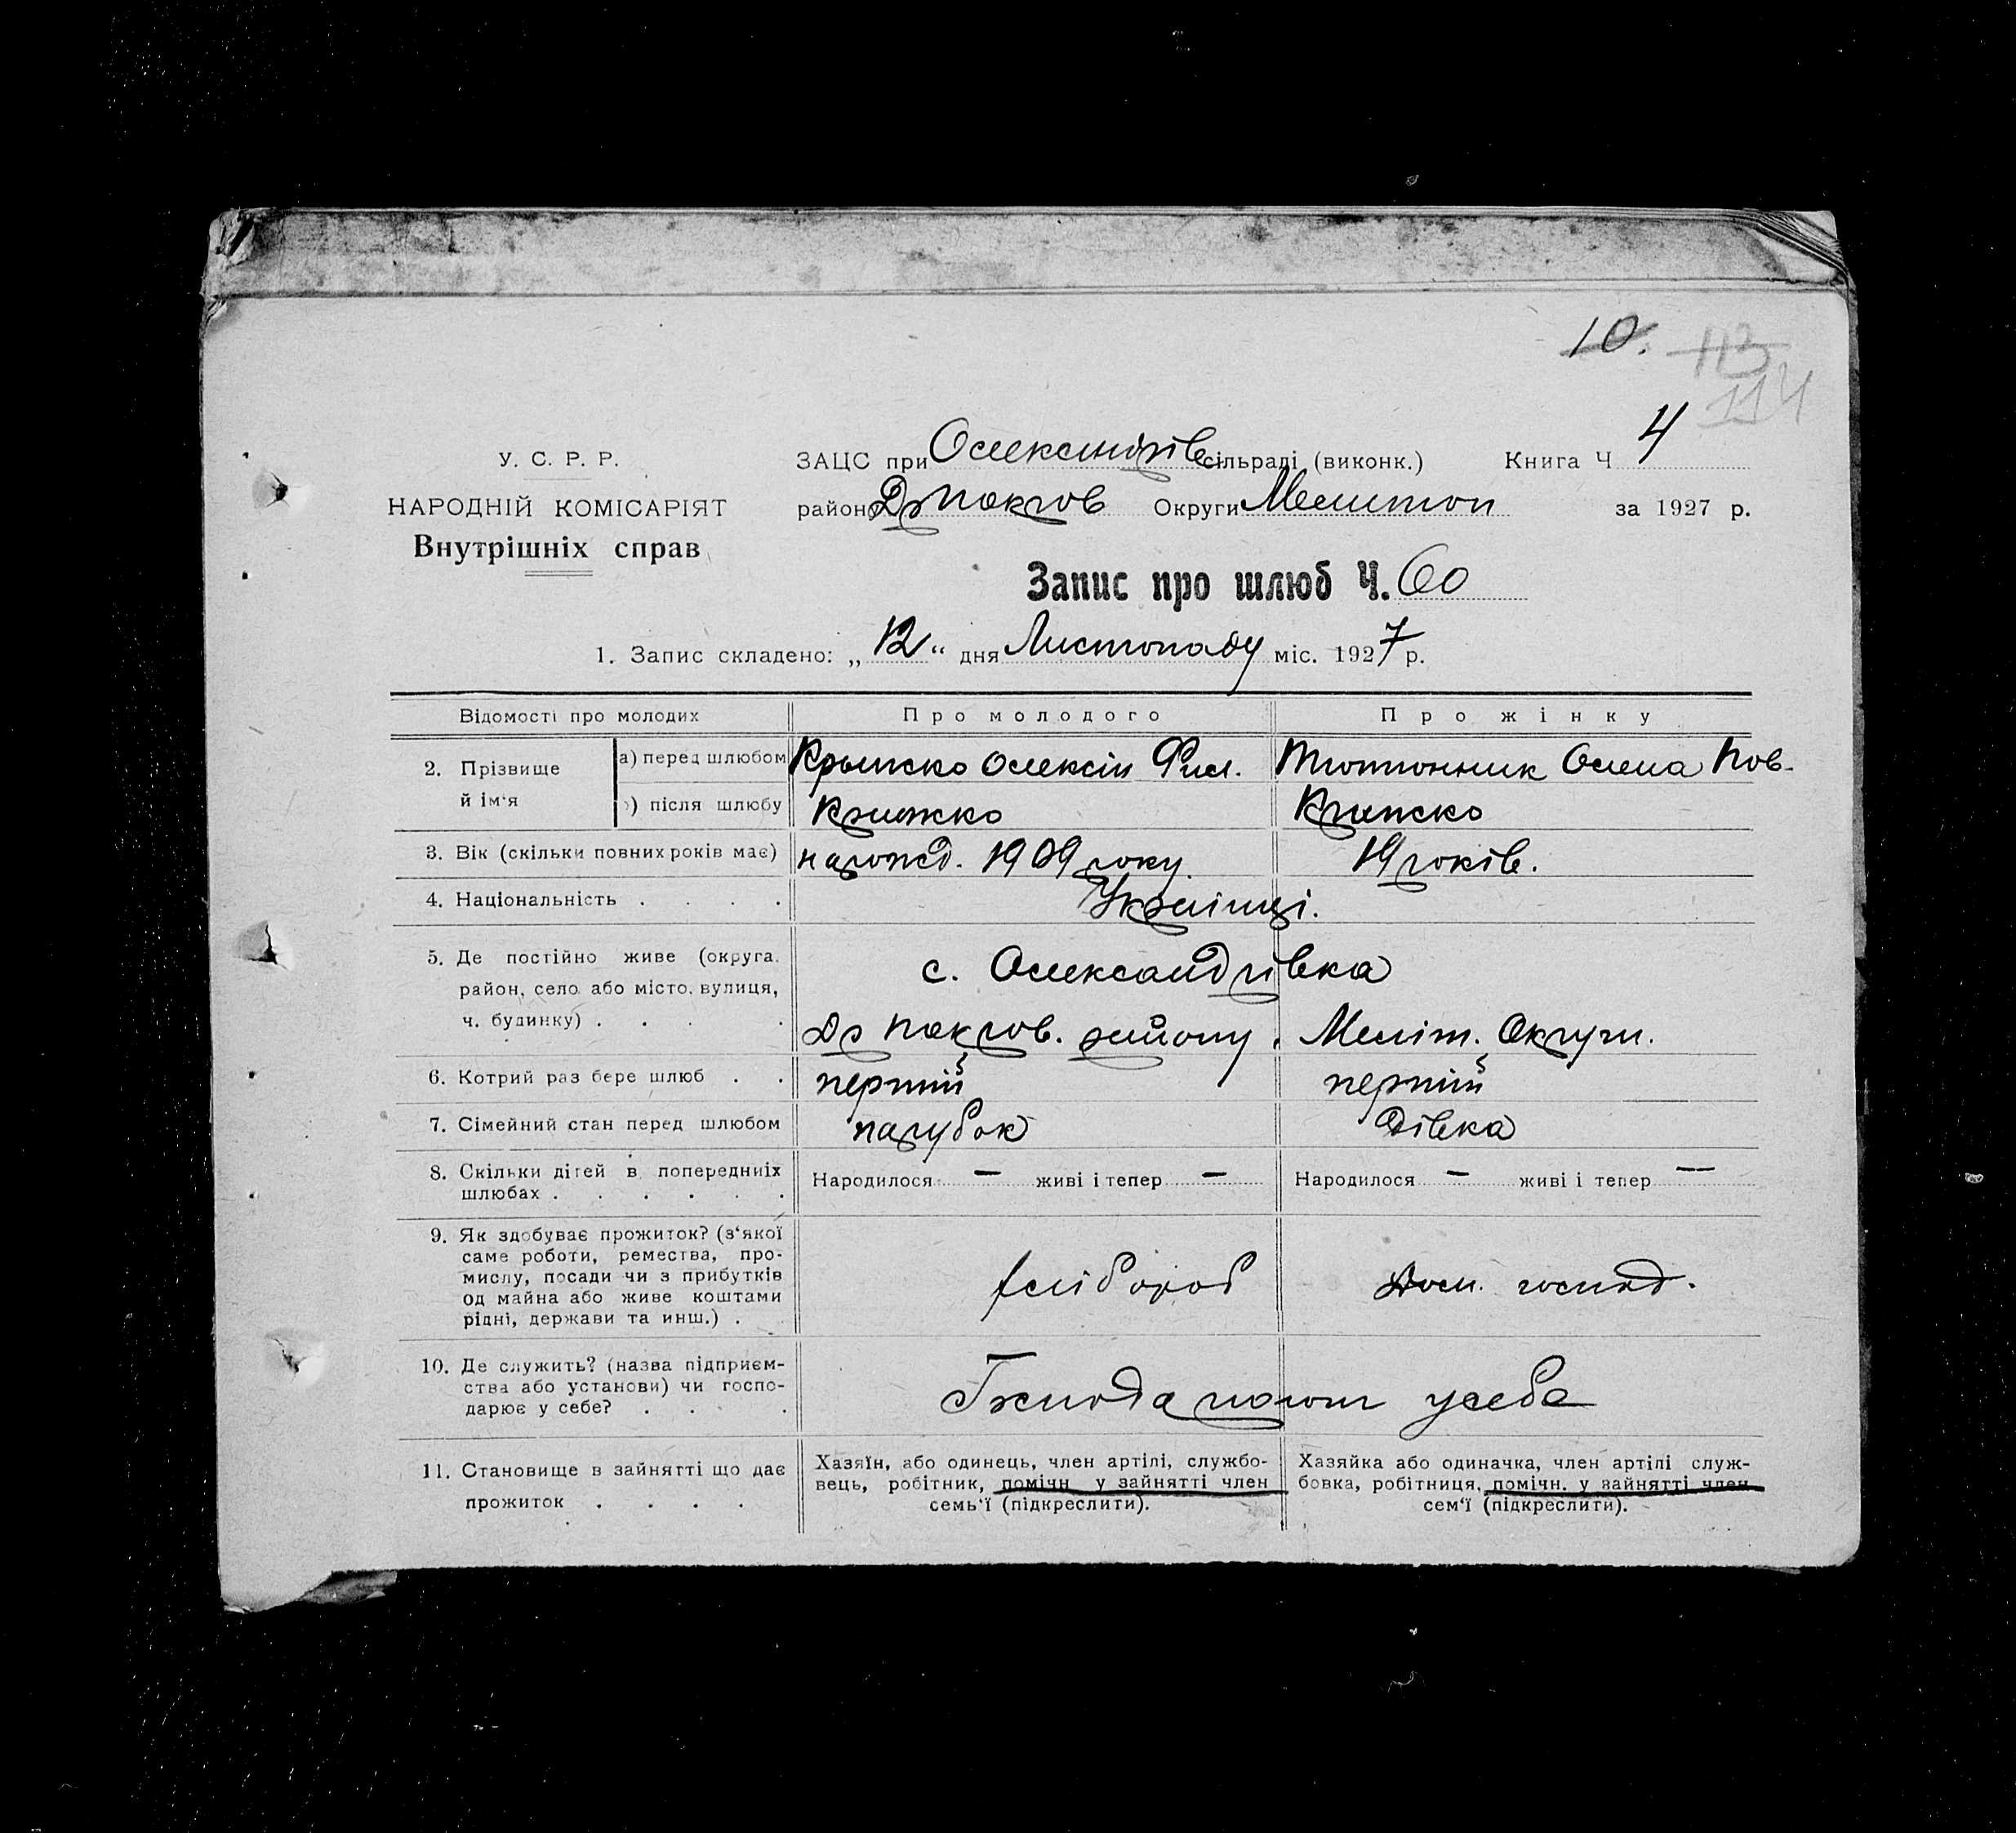 10. 113
114
У. С. Р. Р.
НАРОДНІЙ КОМІСАРІЯТ
Внутрішніх справ
ЗАЦС при Олександрів сільраді (виконк.) Книга Ч 4
район Др Покров Округи Мелитоп за 1927 р.
Запис про шлюб Ч. 60
1. Запис складено: „ 12 “ дня Листопаду міс. 1927 р.
Відомості про молодих Про молодого Про жінку
2. Прізвище й ім‘я а) перед шлюбом Крыжко Олексій Фил. Тютюнник Олена Пов.
б) після шлюбу Крижко Крижко
3. Вік (скільки повних років має) нарожд. 1909 року. 19 років.
4. Національність . . . . Українці.
5. Де постійно живе (округа, с. Олександрівка
район, село або місто, вулиця,
ч. будинку) . . . . Др Покров. району, Меліт. Округи.
6. Котрий раз бере шлюб . . перший перший
7. Сімейний стан перед шлюбом парубок дівка
8. Скільки дітей в попередніх Народилося — живі і тепер — Народилося — живі і тепер —
шлюбах . . . . . .
9. Як здобуває прожиток? (з‘якої
саме роботи, ремества, про-
мислу, посади чи з прибутків хлібороб Дом. господ.
од майна або живе коштами
рідні, держави та инш.) .
10. Де служить? (назва підприєм-
ства або установи) чи госпо- Господарюют усебе
дарює у себе? . . . .
11. Становище в зайнятті що дає
прожиток . . . .
Хазяїн, або одинець, член артілі, службо-
вець, робітник, помічн. у зайнятті член
семь‘ї (підкреслити).
Хазяйка або одиначка, член артілі служ-
бовка, робітниця, помічн. у зайнятті член
сем‘ї (підкреслити).